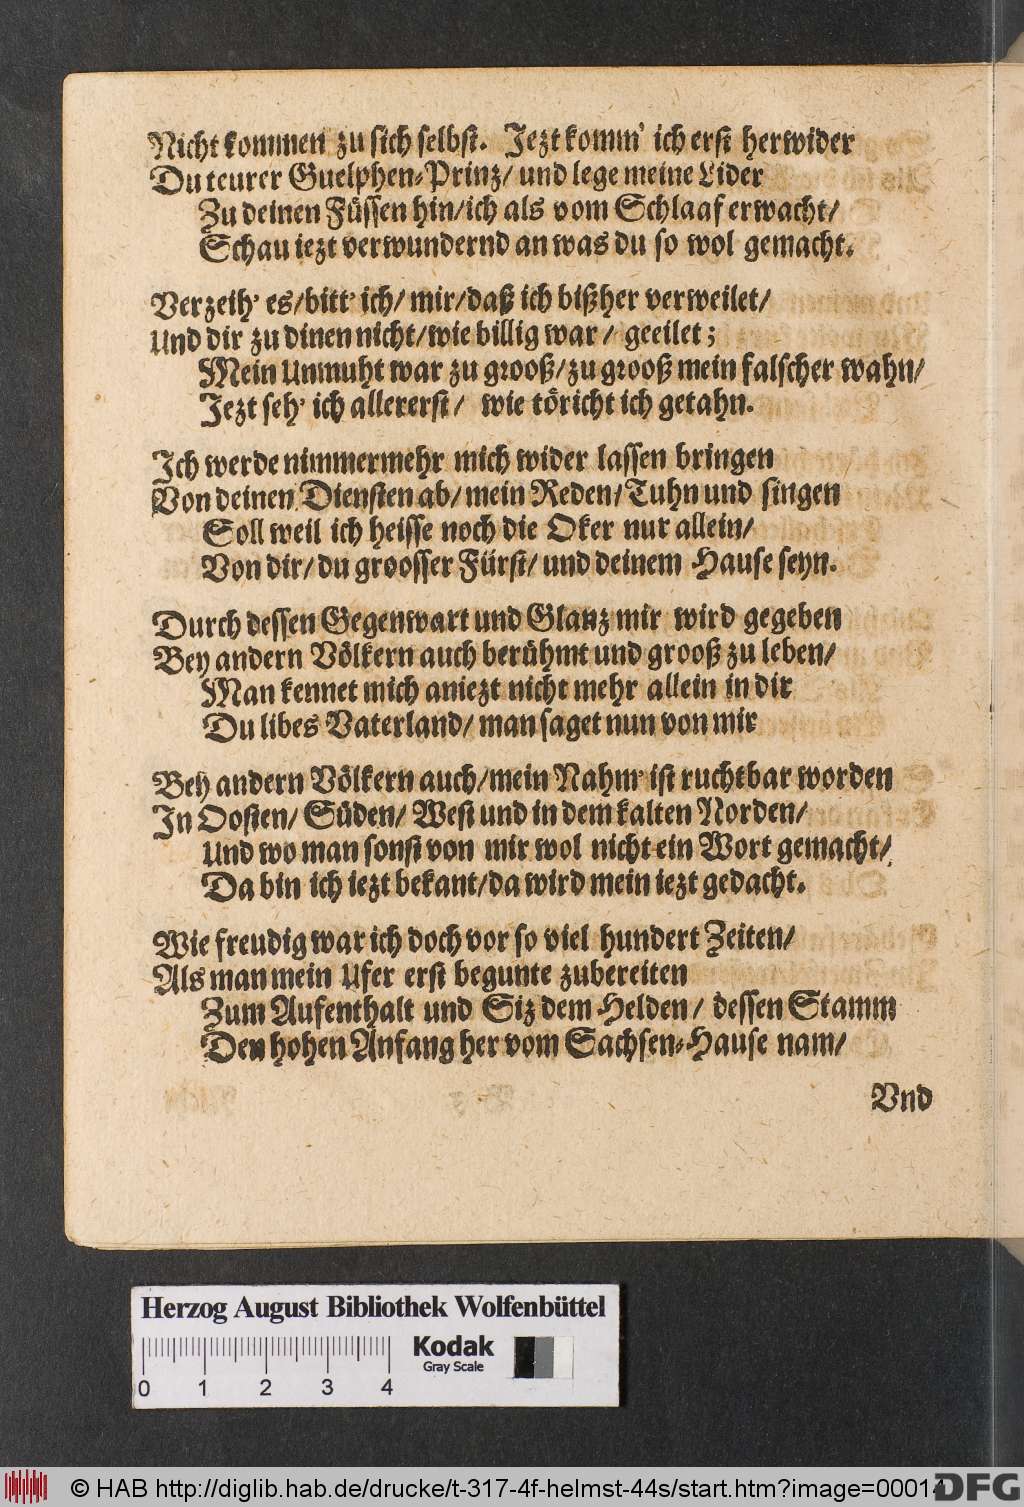 Nicht kommen zu sich selbst. Jezt komm' ich erst herwider
Du teurer Guelphen-Prinz/ und lege meine Lider
Zu deinen Füssen hin/ ich als vom Schlaaf erwacht/
Schau iezt verwundernd an was du so wol gemacht.
Verzeih' es/ bitt' ich/ mir/ daß ich bißher verweilet/
Und dir zu dinen nicht/ wie billig war/ geeilet;
Mein Unmuht war zu grooß/ zu grooß mein falscher wahn/
Jezt seh' ich allererst/ wie töricht ich getahn.
Ich werde nimmermehr mich wider lassen bringen
Von deinen Diensten ab/ mein Reden/ Tuhn und singen
Soll weil ich heisse noch die Oker nur allein/
Von dir/ du groosser Fürst/ und deinem Hause seyn.
Durch dessen Gegenwart und Glanz mir wird gegeben
Bey andern Völkern auch berühmt und grooß zu leben/
Man kennet mich aniezt nicht mehr allein in dir
Du libes Vaterland/ man saget nun von mir
Bey andern Völkern auch/ mein Nahm' ist ruchtbar worden
In Oosten/ Süden/ West und in dem kalten Norden/
Und wo man sonst von mir wol nicht ein Wort gemacht/
Da bin ich iezt bekant/ da wird mein iezt gedacht.
Wie freudig war ich doch vor so viel hundert Zeiten/
Als man mein Ufer erst begunte zubereiten
Zum Aufenthalt und Siz dem Helden/ dessen Stamm
Den hohen Anfang her vom Sachsen-Hause nam/
Vnd
Herzog August Bibliothek Wolfenbüttel
Kodak
Gray Scale
0 1 2 3 4
© HAB http://diglib.hab.de/drucke/t-317-4f-helmst-44s/start.htm?image=00014
DFG